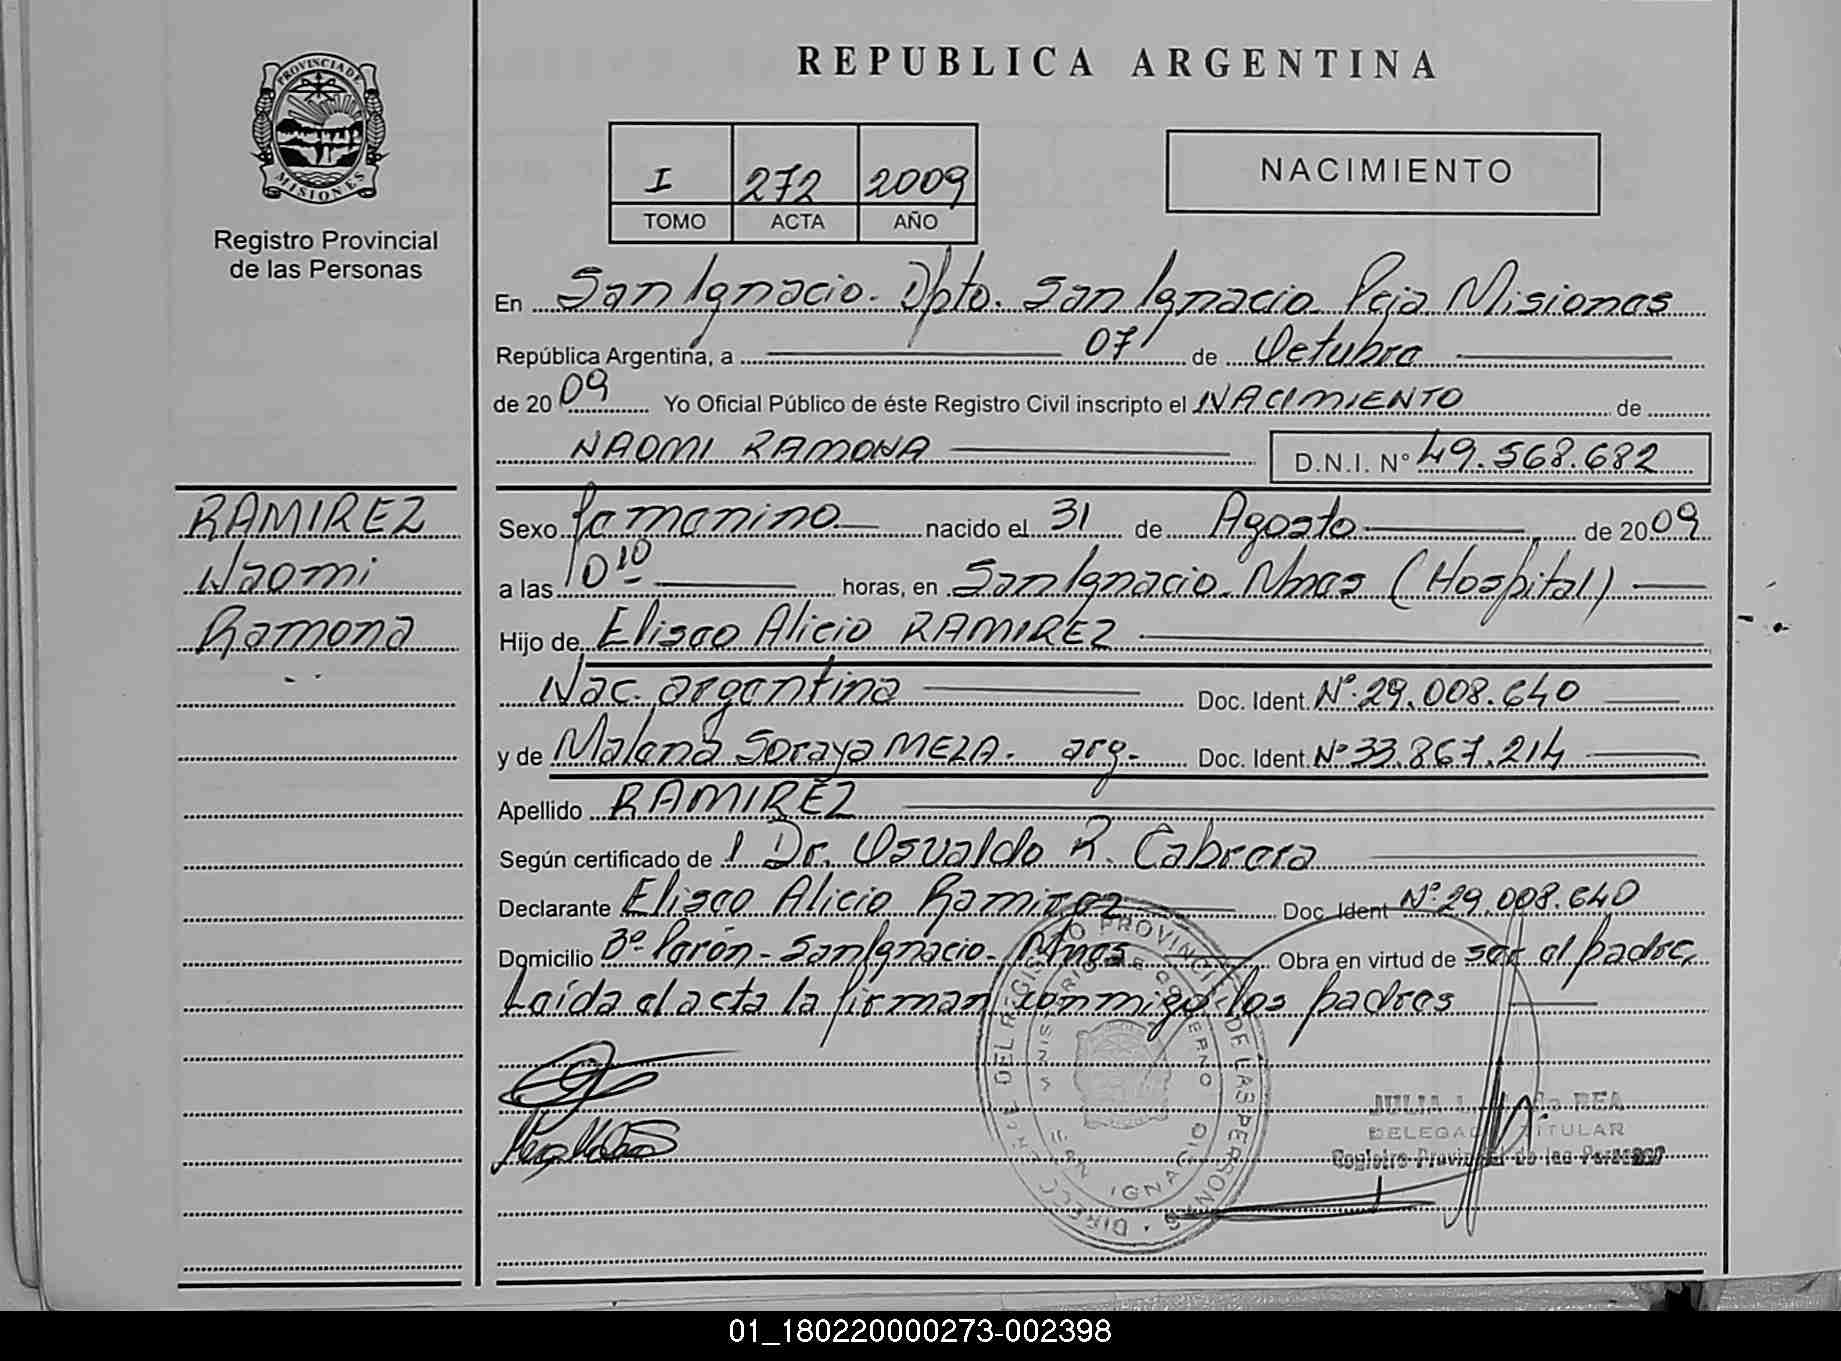 REPUBLICA ARGENTINA
PROVINCIA DE
MISIONES
Registro Provincial
de las Personas
I 272 2009
TOMO ACTA AÑO
NACIMIENTO
En San Ignacio. Dpto. San Ignacio Pcia Misiones
República Argentina, a 07 de Octubre
de 2009 Yo Oficial Público de éste Registro Civil inscripto el NACIMIENTO de
NAOMI RAMONA D.N.I. N° 49.568.682
RAMIREZ
Naomi
Ramona
Sexo femenino nacido el 31 de Agosto de 2009
a las 10 horas, en San Ignacio. Mnes (Hospital)
Hijo de Eliseo Alicio RAMIREZ
Nac. argentina Doc. Ident. Nº 29.008.640
y de Malena Soraya MEZA. arg. Doc. Ident. Nº 33.867.214
Apellido RAMIREZ
Según certificado de 1 Dr. Osvaldo R. Cabrera
Declarante Eliseo Alicio Ramirez Doc. Ident Nº 29.008.640
Domicilio Bº Perón - San Ignacio - Mnes Obra en virtud de ser el padre.
Leída el acta la firman conmigo los padres
JULIA L. de REA
DELEGADA TITULAR
Registro Provincial de las Personas
IGNACIO
01_180220000273-002398